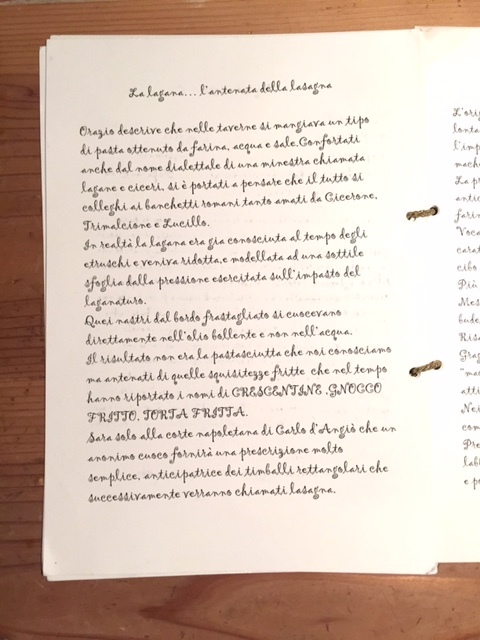 La lagana... l'antenata della lasagna
Orazio descrive che nelle taverne si mangiava un tipo
di pasta ottenuto da farina, acqua e sale.Confortati
anche dal nome dialettale di una minestra chiamata
lagane e ciceri, si è portati a pensare che il tutto si
colleghi ai banchetti romani tanto amati da Cicerone,
Trimalcione e Lucillo.
In realtà la lagana era gia conosciuta al tempo degli
etruschi e veniva ridotta,e modellata ad una sottile
sfoglia dalla pressione esercitata sull'impasto del
laganaturo.
Quei nastri dal bordo frastagliato si cuocevano
direttamente nell'olio bollente e non nell'acqua.
Il risultato non era la pastasciutta che noi conosciamo
ma antenati di quelle squisitezze fritte che nel tempo
hanno riportato i nomi di CRESCENTINE ,GNOCCO
FRITTO, TORTA FRITTA.
Sara solo alla corte napoletana di Carlo d'Angiò che un
anonimo cuoco fornirà una prescrizione molto
semplice, anticipatrice dei timballi rettangolari che
successivamente verranno chiamati lasagna.
L'ori
lonta
l'imp
mach
La p
antic
farin
Voca
carat
cibo
Più
Mes
bude
Risa
Grag
"mac
atti
Nei
com
Pre
lab
e p